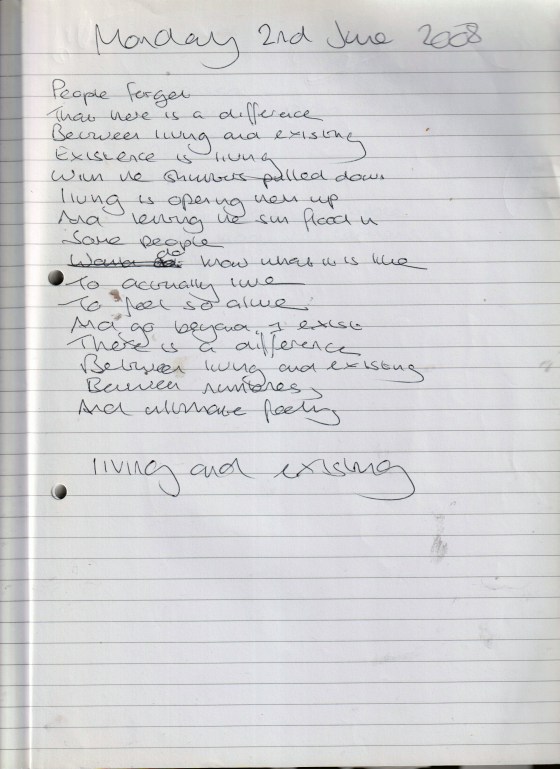 Monday 2nd June 2008
People forget
That there is a difference
Between living and existing
Existence is living
With the shutters pulled down
living is opening them up
And letting the sun flood in
Some people
do know what it is like
To actually live
To feel so alive
And go beyond I exist
There is a difference
Between living and existing
Between numbness
And ultimate feeling
living and existing